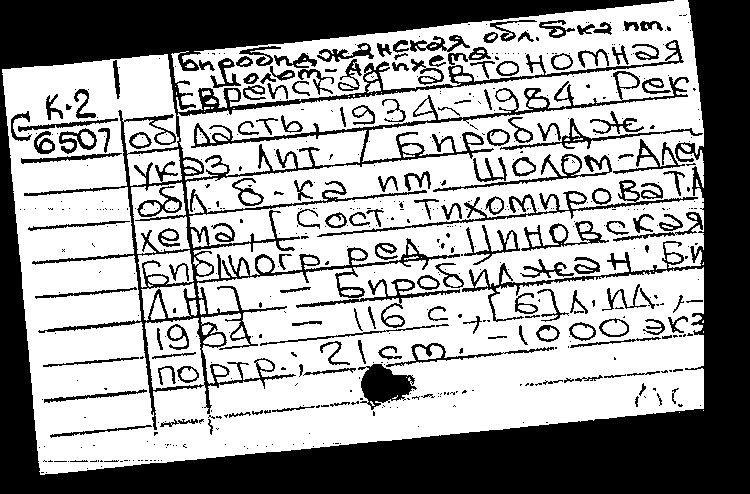 Биробиджанская обл. б-ка им.
Шолом-Алейхема.
К-2
6507
Еврейская автономная
область, 1934-1984: Рек.
указ. лит. / Биробидж.
обл. б-ка им. Шолом-Алей
хема; [Сост.: Тихомирова Т.А
Библиогр. ред.: Циновская
Л.Н.]. - Биробиджан: Б.и
1984. - 116 с., [6] л. ил.,
портр.; 21 cm. - 1000 экз